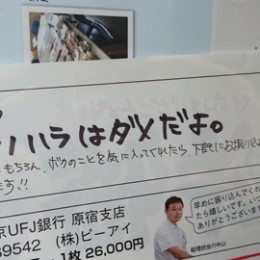 ハラはダメだよ。
もちろん、ボクのことを気に入ってくれたら、下記にお振り込
ます!!
京UFJ銀行 原宿支店
39542 (株)ビーアイ
1枚 26,000円
早めに振り込んでくれ
たら嬉しいです。いつ
ありがとうございます
経理担当の中山